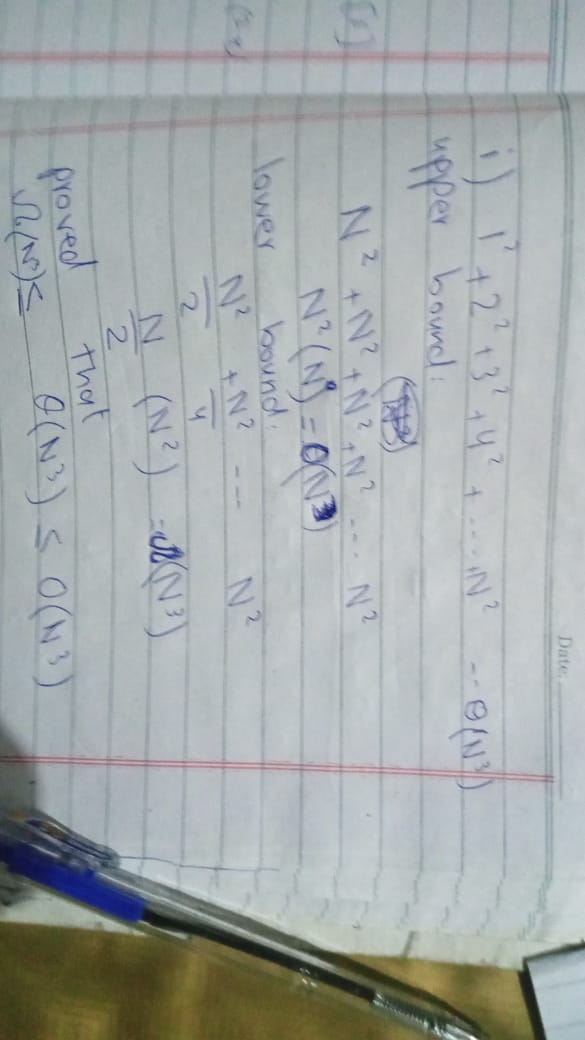 Date:
i) 1² + 2² + 3² + 4² + ... + N² -- θ(N³)
upper bound:
N² + N² + N² + N² ... N²
N²(N) = O(N³)
lower bound:
N²/2 + N²/4 --- N²
N/2 (N²) = Ω(N³)
proved that
Ω(N³) ≤ θ(N³) ≤ O(N³)